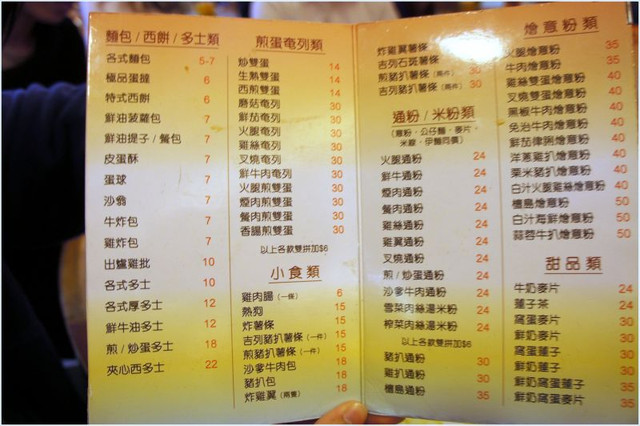 麵包/西餅/多士類
各式麵包 5-7
極品蛋撻 6
特式西餅 6
鮮油菠蘿包 7
鮮油提子/餐包 7
皮蛋酥 7
蛋球 7
沙翁 7
牛炸包 7
雞炸包 7
出爐雞批 10
各式多士 10
各式厚多士 12
鮮牛油多士 12
煎/炒蛋多士 18
夾心西多士 22
煎蛋奄列類
炒雙蛋 14
生熟雙蛋 14
西煎雙蛋 14
磨菇奄列 30
鮮茄奄列 30
火腿奄列 30
雞絲奄列 30
叉燒奄列 30
鮮牛肉奄列 30
火腿煎雙蛋 30
煙肉煎雙蛋 30
餐肉煎雙蛋 30
香腸煎雙蛋 30
以上各款雙拼加$6
小食類
雞肉腸(一條) 6
熱狗 15
炸薯條 15
吉列豬扒薯條(一件) 15
煎豬扒薯條(一件) 15
沙爹牛肉包 18
豬扒包 18
炸雞翼(兩隻) 18
炸雞翼薯條
吉列石斑薯條
煎豬扒薯條(兩件) 30
吉列豬扒薯條(兩件) 30
通粉/米粉類
(意粉、公仔麵、麥片、
米線、伊麵同價)
火腿通粉 24
鮮牛通粉 24
煙肉通粉 24
餐肉通粉 24
雞絲通粉 24
雞翼通粉 24
叉燒通粉 24
煎/炒蛋通粉 24
沙爹牛肉通粉 24
雪菜肉絲湯米粉 24
榨菜肉絲湯米粉 24
以上各款雙拼加$6
豬扒通粉 30
雞扒通粉 30
檀島通粉 35
燴意粉類
火腿燴意粉 35
牛肉燴意粉 35
雞絲雙蛋燴意粉 40
叉燒雙蛋燴意粉 40
黑椒牛肉燴意粉 40
免治牛肉燴意粉 40
鮮茄豬扒燴意粉 40
洋蔥雞扒燴意粉 40
粟米豬扒燴意粉 40
白汁火腿雞絲燴意粉 40
檀島燴意粉 50
白汁海鮮燴意粉 50
蒜蓉牛扒燴意粉 50
甜品類
牛奶麥片 24
蓮子茶 24
窩蛋麥片 30
鮮奶麥片 30
窩蛋蓮子 30
鮮奶蓮子 30
鮮奶窩蛋蓮子 35
鮮奶窩蛋麥片 35